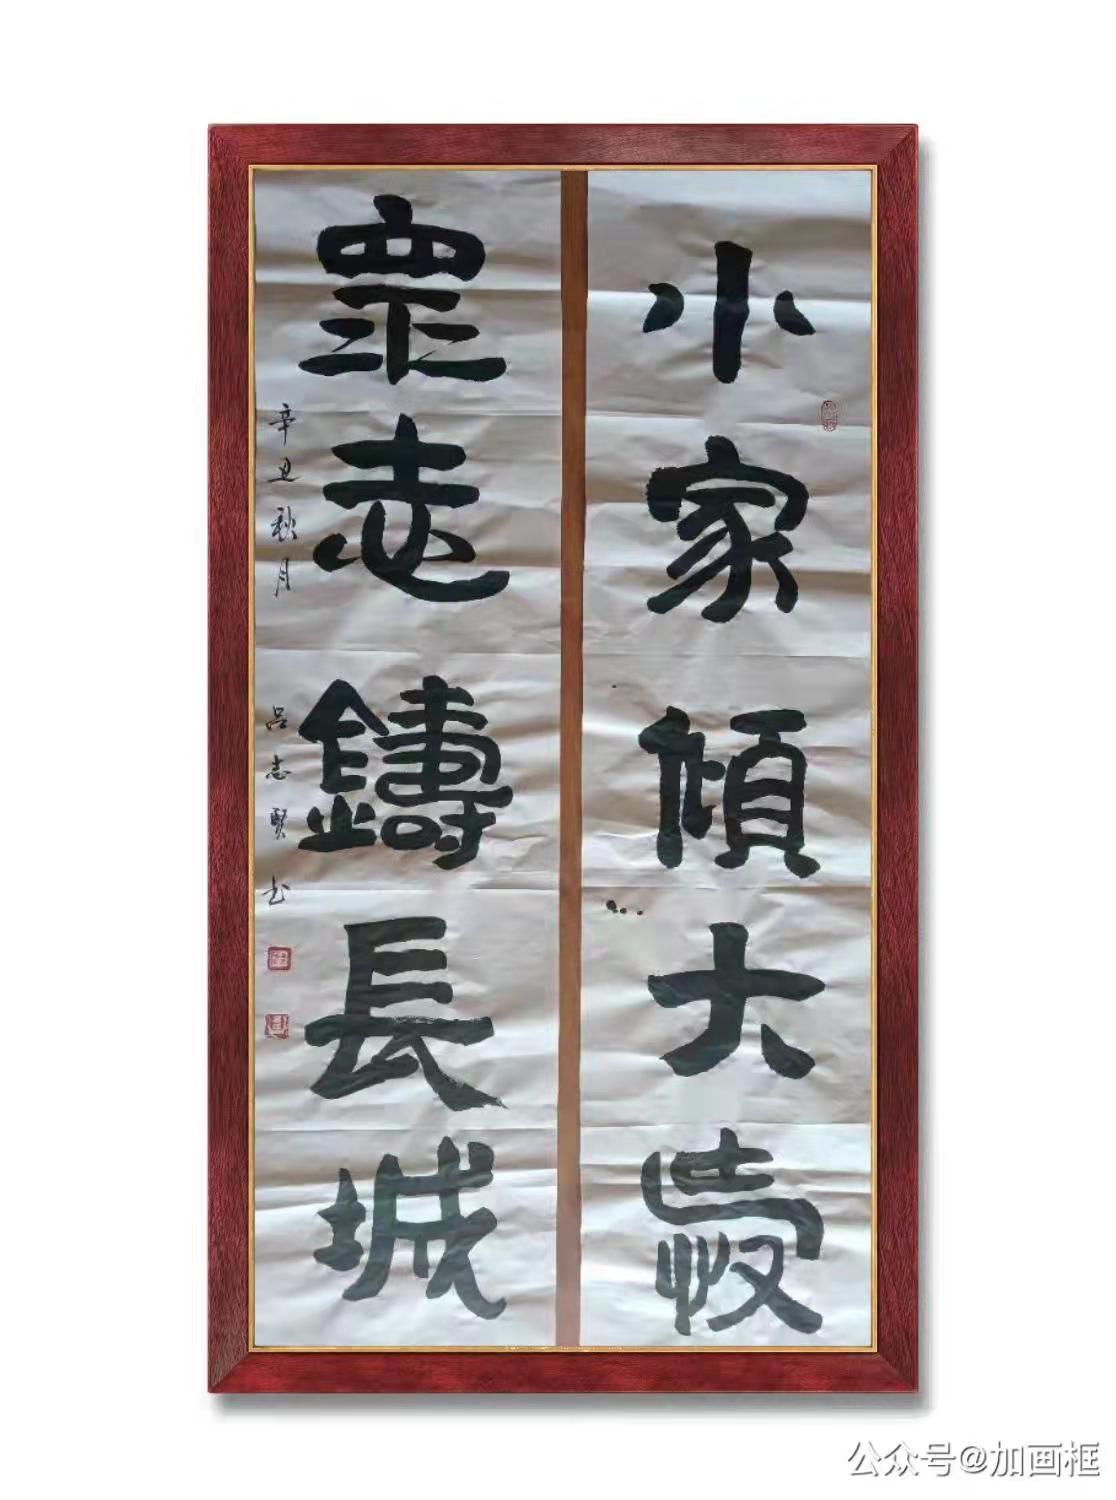 小家傾大愛
眾志鑄長城
辛丑秋月 呂志賢书
公众号@加画框